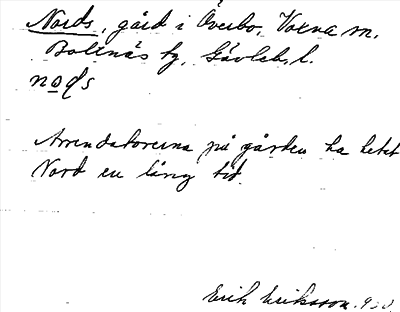 Nords, gård i Överbo, Voxna sn.
Bollnäs tg, Gävleb. l.
nods
Arrendatorerna på gården ha hetat
Nord en lång tid.
Erik Eriksson. 930.